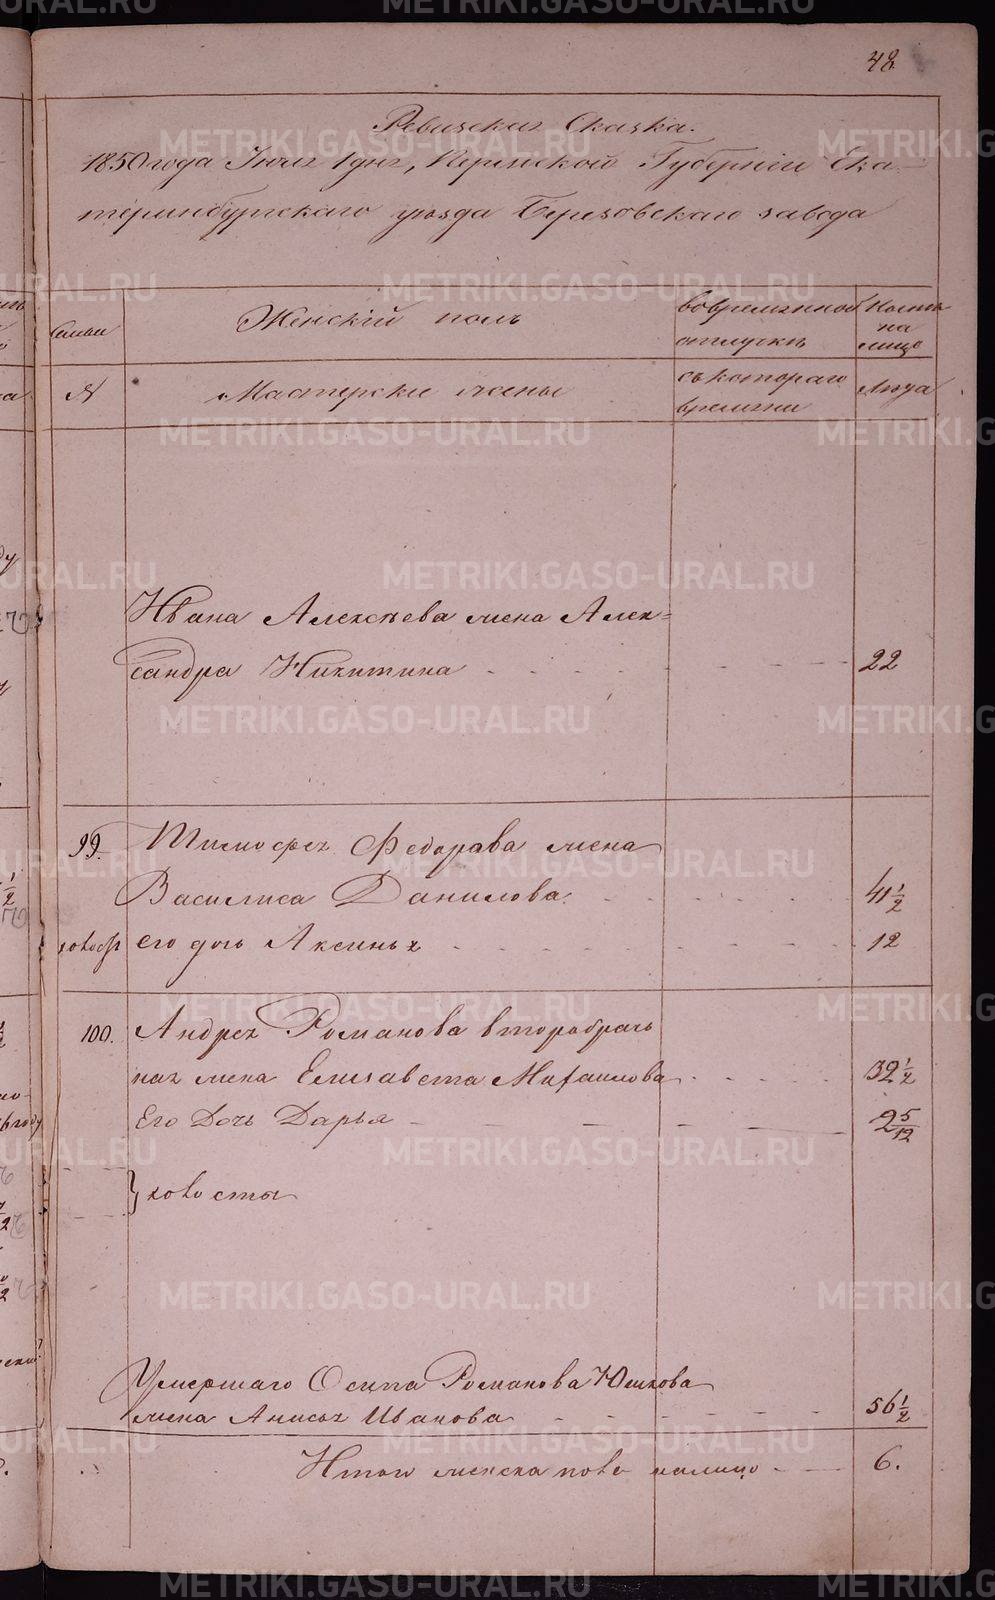 48
Ревизская Сказка.
1850 года Июня 1 дня, Пермской Губернiи Ека-
теринбургскаго уѣзда Березовскаго завода
Семьи
Женскiй полъ
во временной
отлучкѣ
Налицо
на
лицо
№
Мастерскiе жены
съ котораго
времяни
Лѣта
Ивана Алексѣева жена Алек=
сандра Никитина
22
99.
Тимофея Федорава жена
Василиса Данилова
41 1/2
его дочь Аксинья
12
100.
Андрея Романова второбрач
ная жена Елизавета Михаилова
32 1/2
Его Дочь Дарья
2 5/12
холосты
Умершаго Осипа Романова Юшкова
жена Анисья Иванова
56 1/2
Итого женска полу налицо
6.
METRIKI.GASO-URAL.RU